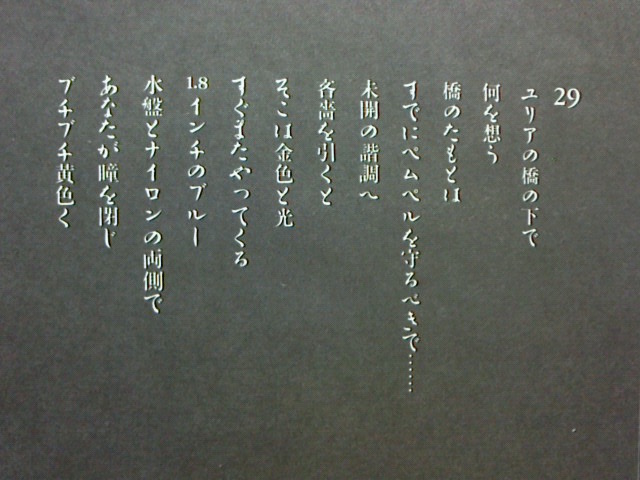 29
ユリアの橋の下で
何を想う
橋のたもとは
すでにペムペルを守るべきで……
未開の諧調へ
吝嗇を引くと
そこは金色と光
すぐまたやってくる
1.8インチのブルー
水盤とナイロンの両側で
あなたが瞳を閉じ
プチプチ黄色く